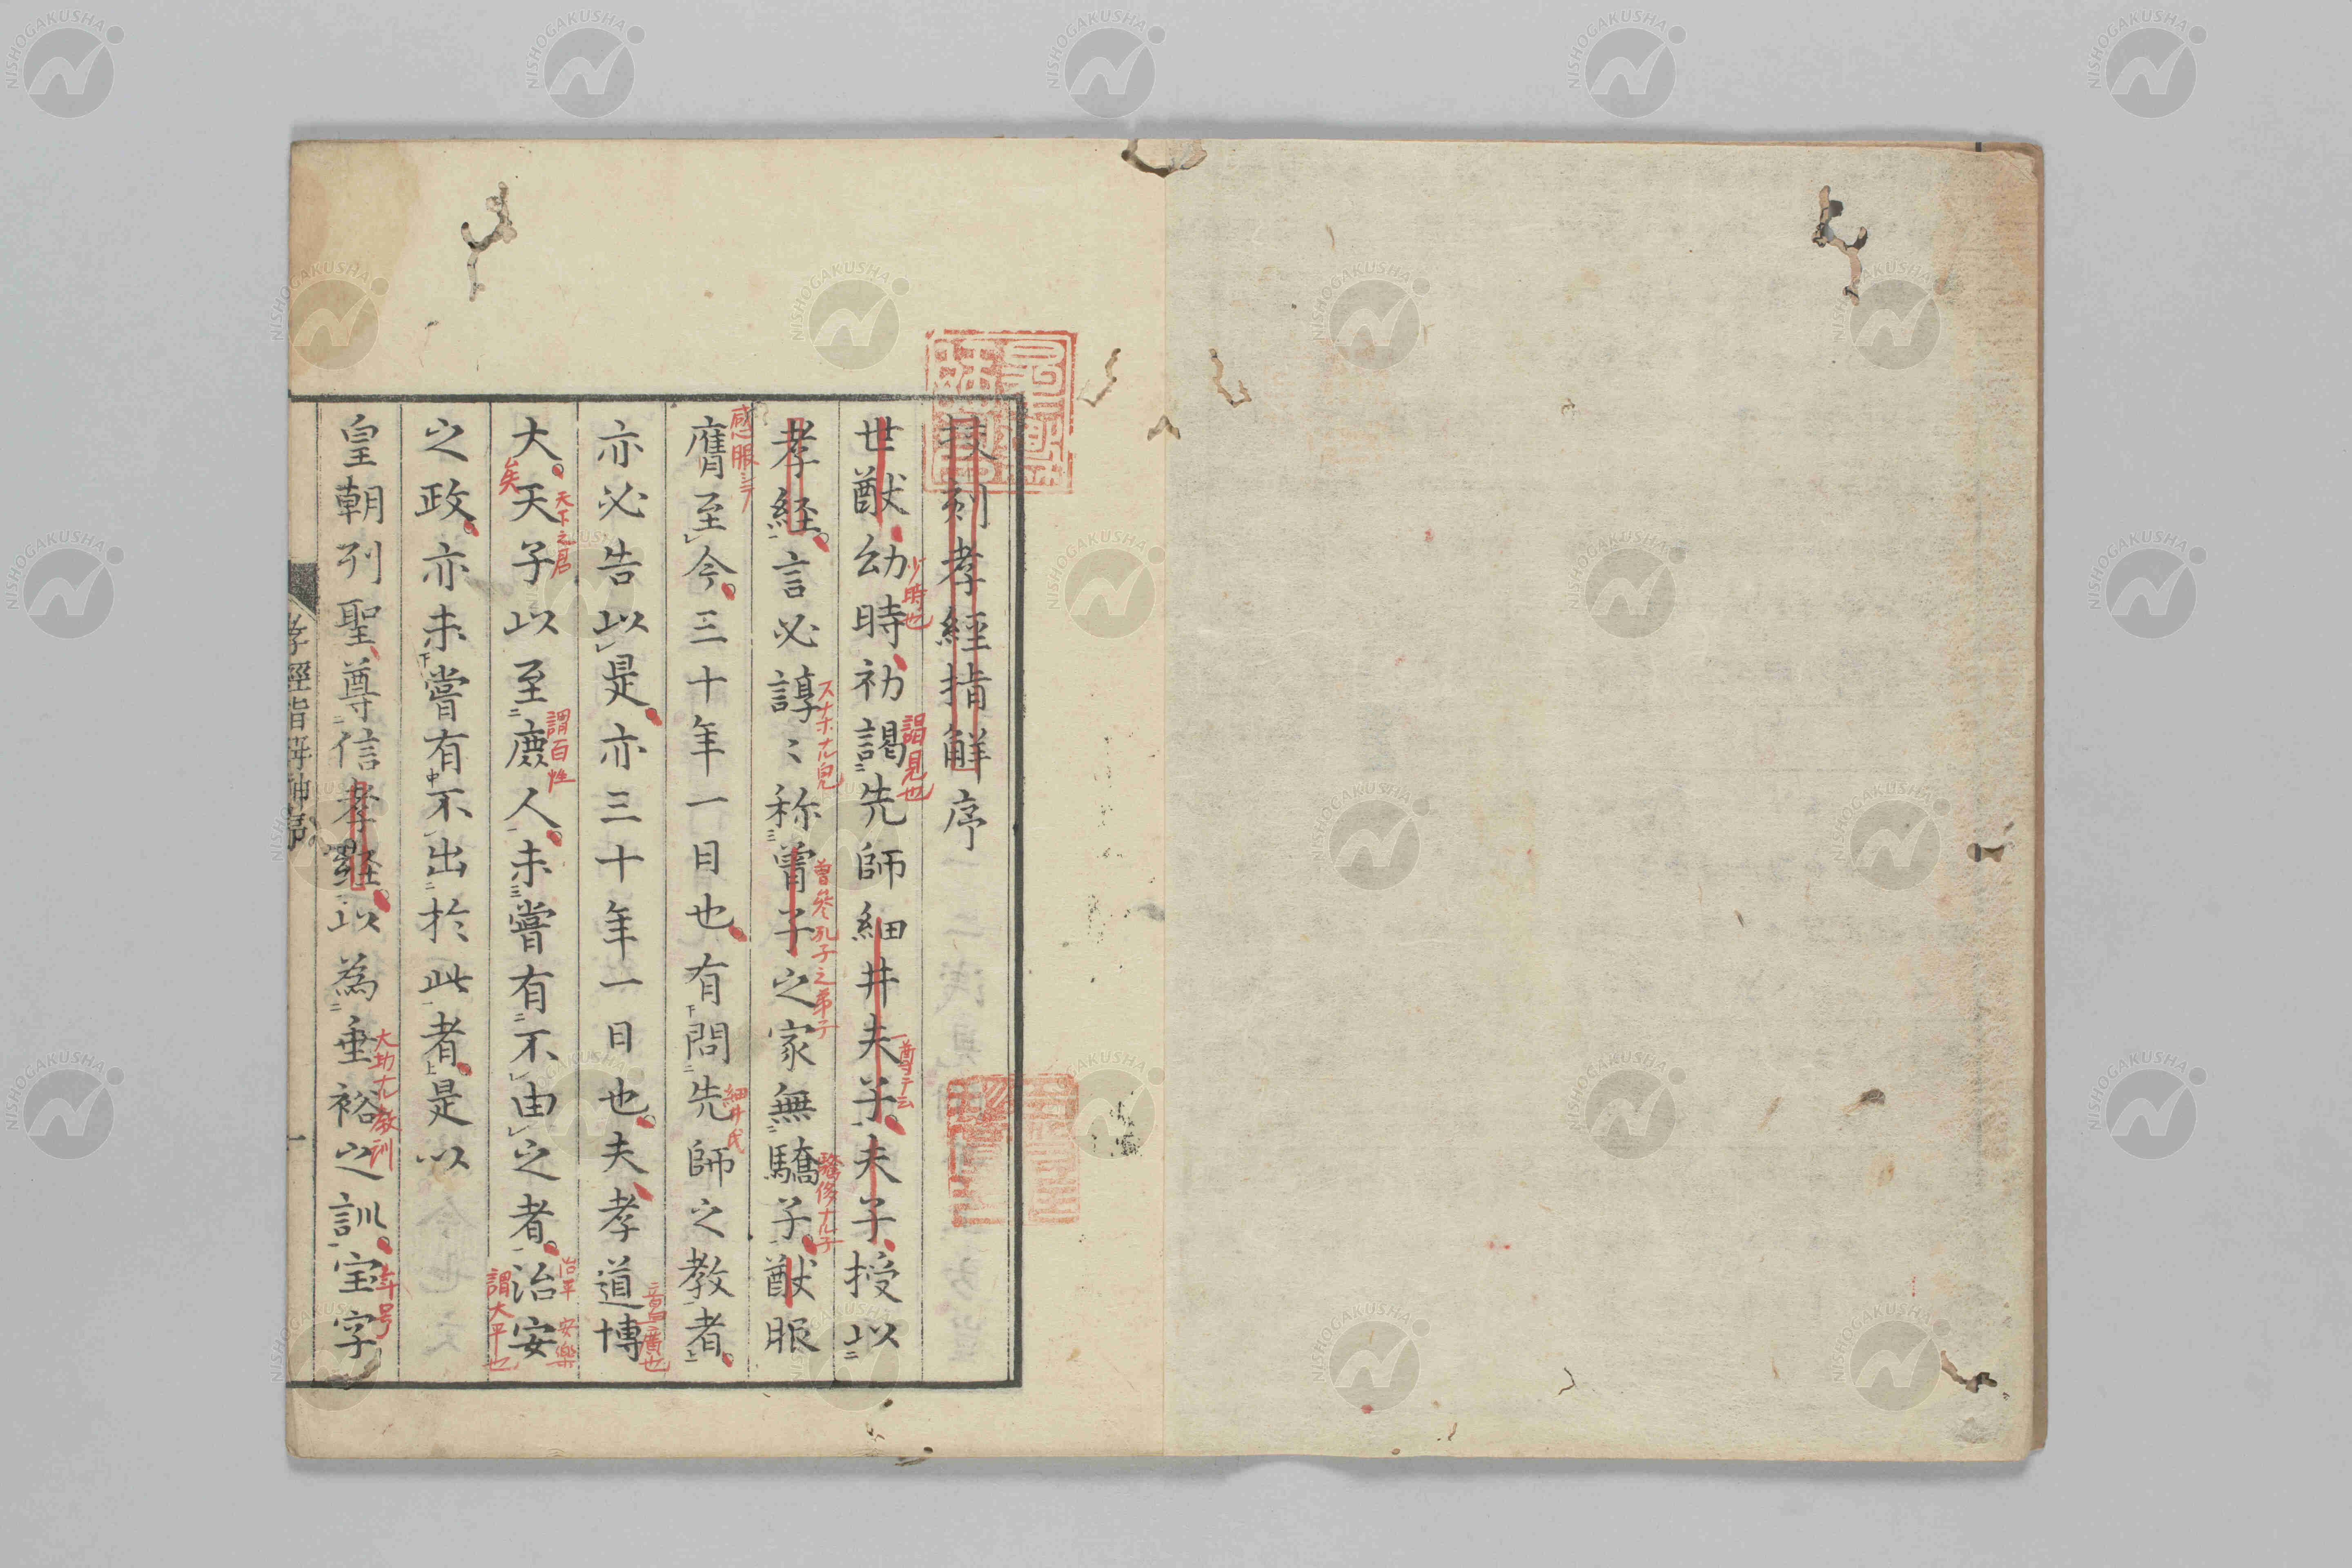 挍刻孝經指解序
世猷幼時初謁先師細井夫子夫子授以
孝経言必諄〻称曽子之家無驕子猷服
膺至今三十年一日也有問先師之教者
亦必告以是亦三十年一日也夫孝道博
大天子以至庻人未嘗有不由之者治安
之政亦未嘗有不出於此者是以
皇朝列聖尊信孝經以為垂裕之訓宝字
少時也
謁見也
曽參孔子之弟子
感服
細井氏
廣也
矣
天下之君
謂百性
治平 安樂
謂大平也
年号
NISHOGAKUSHA